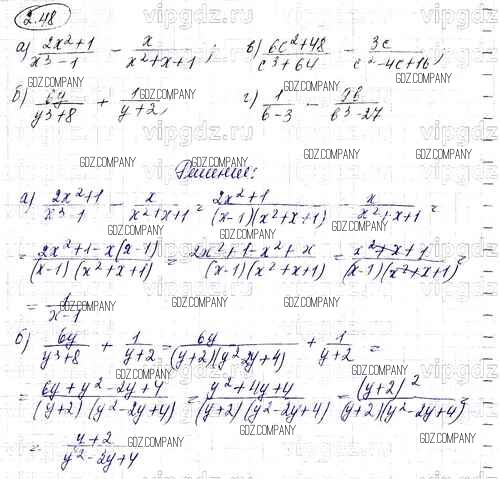 2.48
а) (2x²+1)/(x³-1) - x/(x²+x+1); в) (6c²+48)/(c³+64) - 3c/(c²-4c+16);
б) 6y/(y³+8) + 1/(y+2); г) 1/(b-3) - 9b/(b³-27)
Решение:
а) (2x²+1)/(x³-1) - x/(x²+x+1) = (2x²+1)/((x-1)(x²+x+1)) - x/(x²+x+1) =
= (2x²+1-x(x-1))/((x-1)(x²+x+1)) = (2x²+1-x²+x)/((x-1)(x²+x+1)) = (x²+x+1)/((x-1)(x²+x+1)) =
= 1/(x-1)
б) 6y/(y³+8) + 1/(y+2) = 6y/((y+2)(y²-2y+4)) + 1/(y+2) =
= (6y+y²-2y+4)/((y+2)(y²-2y+4)) = (y²+4y+4)/((y+2)(y²-2y+4)) = (y+2)²/((y+2)(y²-2y+4)) =
= (y+2)/(y²-2y+4)
vipgdz.ru
GDZ.COMPANY